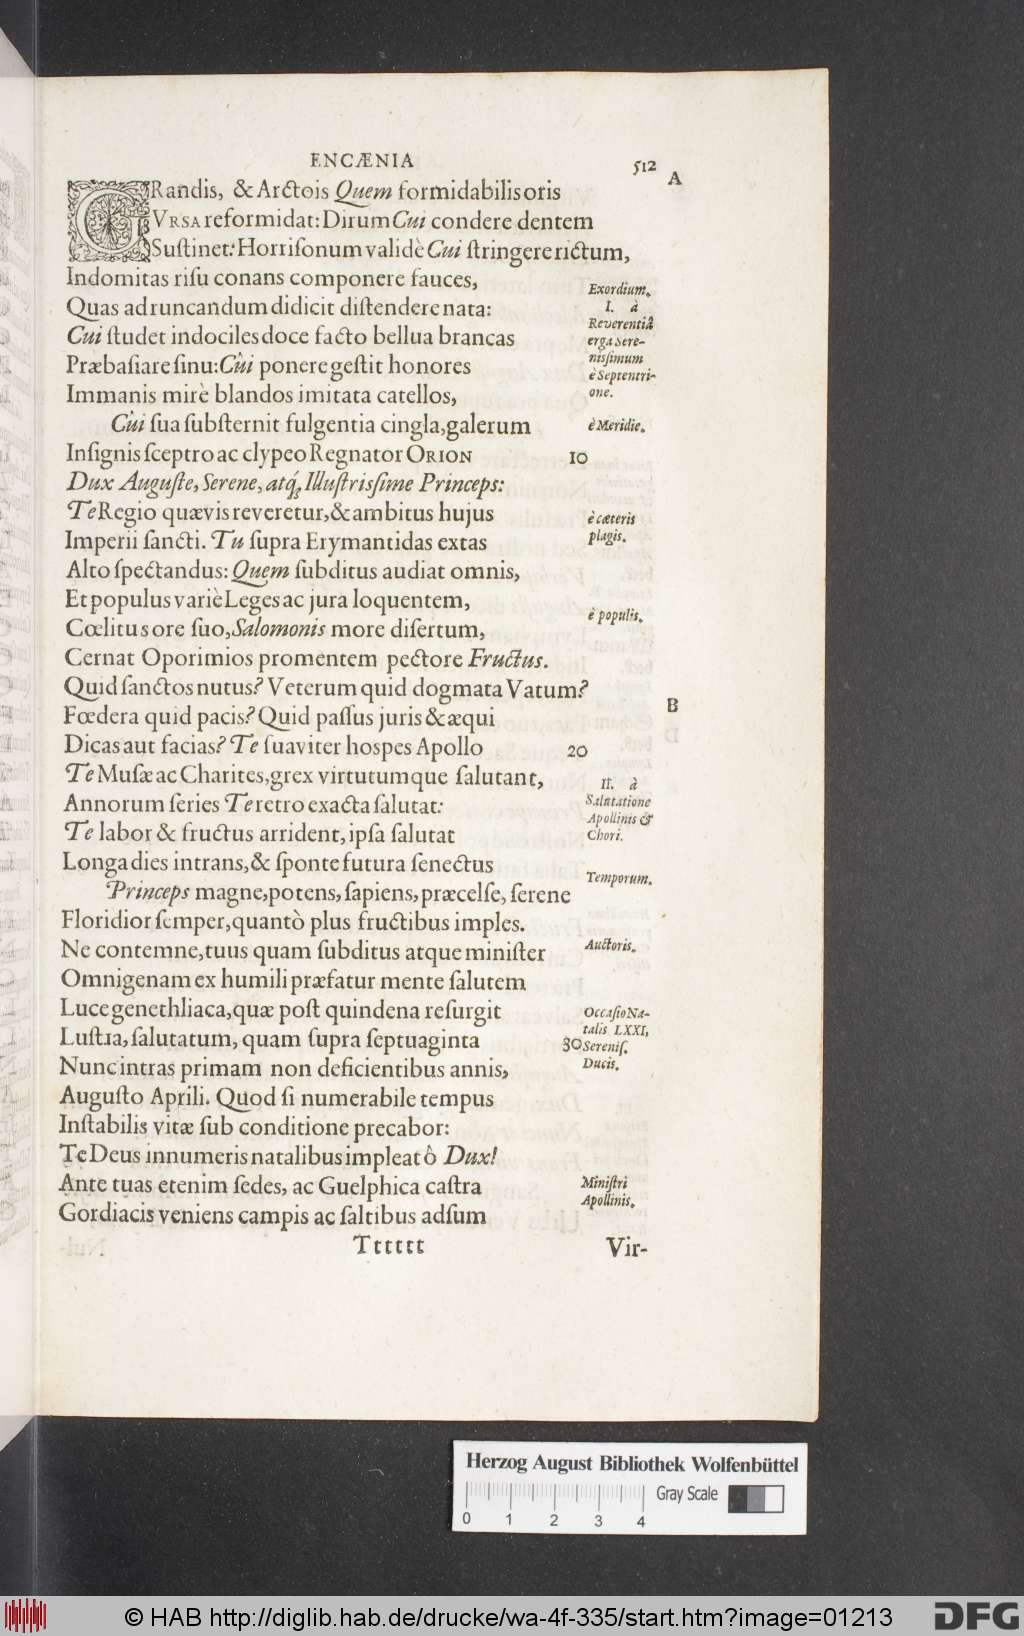 ENCÆNIA
512
A
GRandis, & Arctois Quem formidabilis oris
VRSA reformidat: Dirum Cui condere dentem
Suſtinet: Horriſonum validè Cui ſtringere rictum,
Indomitas riſu conans componere fauces,
Quas ad runcandum didicit diſtendere nata:
Cui ſtudet indociles doce facto bellua brancas
Præbaſiare ſinu: Cùi ponere geſtit honores
Immanis mirè blandos imitata catellos,
Cùi ſua ſubſternit fulgentia cingla, galerum
Inſignis ſceptro ac clypeo Regnator ORION
10
Dux Auguſte, Serene, atq́; Illuſtriſsime Princeps:
Te Regio quævis reveretur, & ambitus hujus
Imperii ſancti. Tu ſupra Erymantidas extas
Alto ſpectandus: Quem ſubditus audiat omnis,
Et populus variè Leges ac jura loquentem,
Cœlitus ore ſuo, Salomonis more diſertum,
Cernat Oporimios promentem pectore Fructus.
Quid ſanctos nutus? Veterum quid dogmata Vatum?
Fœdera quid pacis? Quid paſſus juris & æqui
Dicas aut facias? Te ſuaviter hoſpes Apollo
20
Te Muſæ ac Charites, grex virtutumque ſalutant,
Annorum ſeries Te retro exacta ſalutat:
Te labor & fructus arrident, ipſa ſalutat
Longa dies intrans, & ſponte futura ſenectus
Princeps magne, potens, ſapiens, præcelſe, ſerene
Floridior ſemper, quantò plus fructibus imples.
Ne contemne, tuus quam ſubditus atque miniſter
Omnigenam ex humili præfatur mente ſalutem
Luce genethliaca, quæ poſt quindena reſurgit
Luſtra, ſalutatum, quam ſupra ſeptuaginta
30
Nunc intras primam non deficientibus annis,
Auguſto Aprili. Quod ſi numerabile tempus
Inſtabilis vitæ ſub conditione precabor:
Te Deus innumeris natalibus impleat ô Dux!
Ante tuas etenim ſedes, ac Guelphica caſtra
Gordiacis veniens campis ac ſaltibus adſum
Tttttt
Vir-
Exordium.
I. à
Reverentiâ
erga Sere-
niſsimum
è Septentri-
one.
è Meridie.
è cæteris
plagis.
è populis.
B
II. à
Salutatione
Apollinis &
Chori.
Temporum.
Auctoris.
Occaſio Na-
talis LXXI,
Sereniſ.
Ducis.
Miniſtri
Apollinis.
Herzog August Bibliothek Wolfenbüttel
Gray Scale
0 1 2 3 4
© HAB http://diglib.hab.de/drucke/wa-4f-335/start.htm?image=01213
DFG